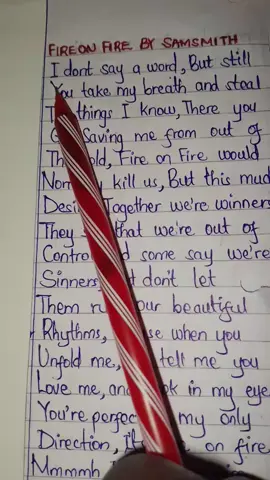 FIRE ON FIRE BY SAMSMITH
I dont say a word, But still
You take my breath and steal
things I know, There you
Saving me from out of
Fire on Fire would
kill us, But this
Together we're winners
They that we're out of
some say we're
Sinners, don't let
Them beautiful
Rhythms, when you
Unfold me, tell me you
Love me, and in my eye
You're my only
Direction, on fire
Mmmmh